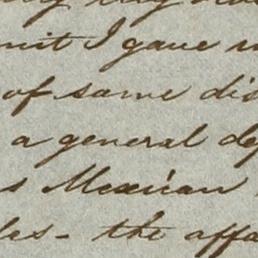 I gave
of same dis
a general de
s Mexican
les - the affa